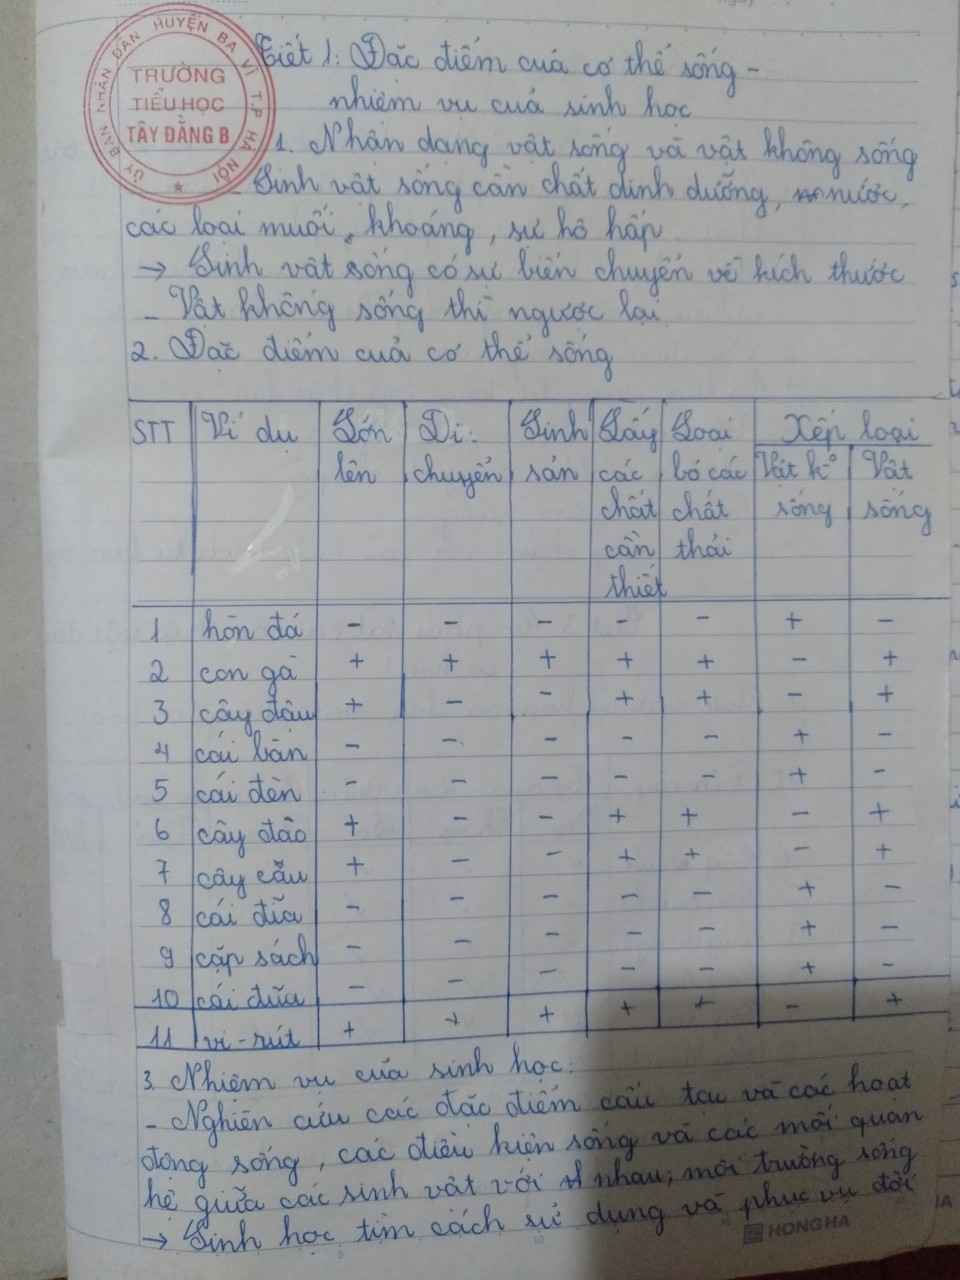 ỦY BAN NHÂN DÂN HUYỆN BA VÌ T.P HÀ NỘI
TRƯỜNG
TIỂU HỌC
TÂY ĐẰNG B
Tiết 1: Đặc điểm của cơ thể sống -
nhiệm vụ của sinh học
1. Nhận dạng vật sống và vật không sống
- Sinh vật sống cần chất dinh dưỡng, nước,
các loại muối, khoáng, sự hô hấp
→ Sinh vật sống có sự biến chuyển về kích thước
- Vật không sống thì ngược lại
2. Đặc điểm của cơ thể sống
STT Ví dụ Lớn lên Di chuyển Sinh sản Lấy các chất cần thiết Loại bỏ các chất thải Xếp loại Vật k° sống Vật sống
1 hòn đá - - - - - + -
2 con gà + + + + + - +
3 cây đậu + - - + + - +
4 cái bàn - - - - - + -
5 cái đèn - - - - - + -
6 cây đào + - - + + - +
7 cây cẩu + - - + + - +
8 cái đĩa - - - - - + -
9 cặp sách - - - - - + -
10 cái đũa - - - - - + -
11 vi-rút + + + + + - +
3. Nhiệm vụ của sinh học:
- Nghiên cứu các đặc điểm cấu tạo và các hoạt
động sống, các điều kiện sống và các mối quan
hệ giữa các sinh vật với nhau; môi trường sống
→ Sinh học tìm cách sử dụng và phục vụ đời
HONGHA